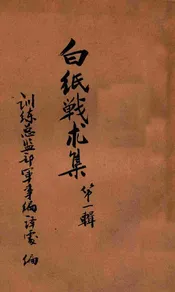 白纸战术集
第一辑
训练总监部军事编译处 编